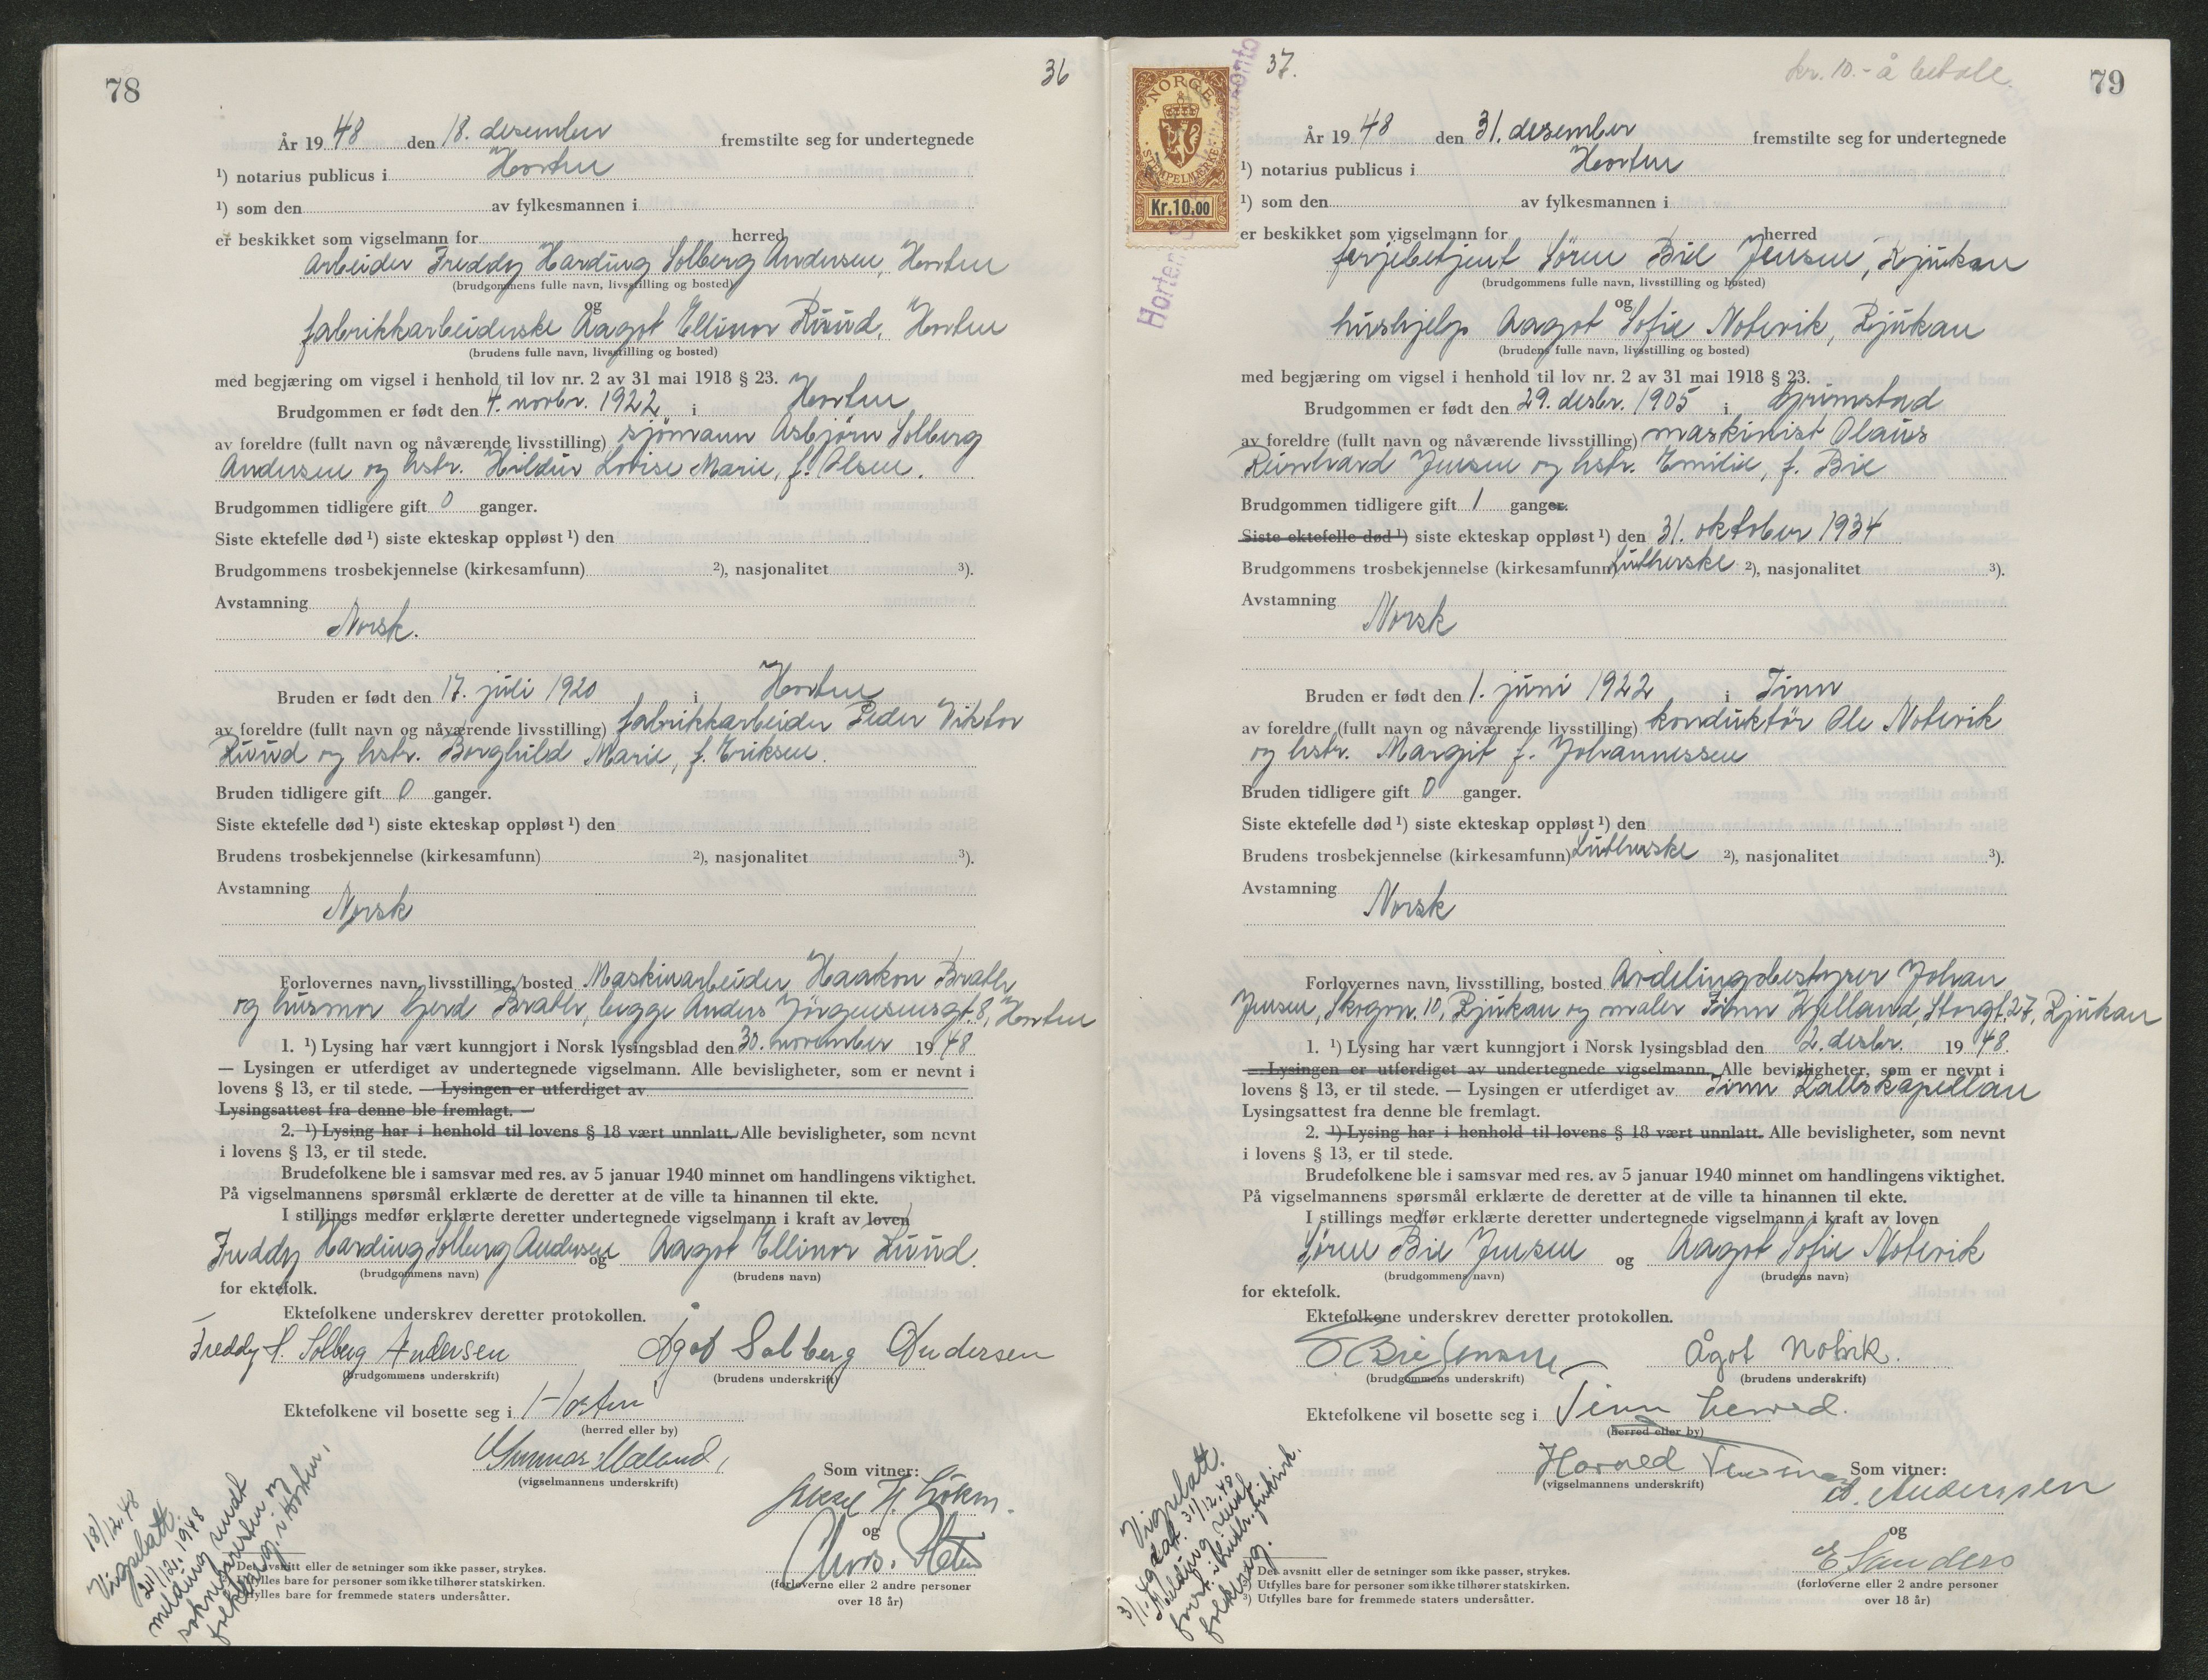 78
36
År 1948 den 18. desember fremstilte seg for undertegnede
¹) notarius publicus i Horten
¹) som den av fylkesmannen i
er beskikket som vigselmann for herred
arbeider Freddy Harding Solberg Andersen, Horten
(brudgommens fulle navn, livsstilling og bosted)
og
fabrikkarbeiderske Aagot Ellinor Ruud, Horten
(brudens fulle navn, livsstilling og bosted)
med begjæring om vigsel i henhold til lov nr. 2 av 31 mai 1918 § 23.
Brudgommen er født den 4. novbr. 1922 i Horten
av foreldre (fullt navn og nåværende livsstilling) sjömann Asbjörn Solberg
Andersen og hstr. Hildur Lovise Marie, f. Olsen.
Brudgommen tidligere gift 0 ganger.
Siste ektefelle død ¹) siste ekteskap oppløst ¹) den
Brudgommens trosbekjennelse (kirkesamfunn) ²), nasjonalitet ³).
Avstamning
Norsk.
Bruden er født den 17. juli 1920 i Horten
av foreldre (fullt navn og nåværende livsstilling) fabrikkarbeider Peder Viktor
Ruud og hstr. Borghild Marie, f. Eriksen.
Bruden tidligere gift 0 ganger.
Siste ektefelle død ¹) siste ekteskap oppløst ¹) den
Brudens trosbekjennelse (kirkesamfunn) ²), nasjonalitet ³).
Avstamning
Norsk
Forlovernes navn, livsstilling, bosted Maskinarbeider Haakon Bratli
og husmor Gerd Bratli, begge Anders Jörgensensgt. 8, Horten
1. ¹) Lysing har vært kunngjort i Norsk lysingsblad den 30. november 1948
— Lysingen er utferdiget av undertegnede vigselmann. Alle bevisligheter, som er nevnt i
lovens § 13, er til stede. — Lysingen er utferdiget av
Lysingsattest fra denne ble fremlagt. —
2. ¹) Lysing har i henhold til lovens § 18 vært unnlatt. Alle bevisligheter, som nevnt
i lovens § 13, er til stede.
Brudefolkene ble i samsvar med res. av 5 januar 1940 minnet om handlingens viktighet.
På vigselmannens spørsmål erklærte de deretter at de ville ta hinannen til ekte.
I stillings medfør erklærte deretter undertegnede vigselmann i kraft av loven
Freddy Harding Solberg Andersen og Aagot Ellinor Ruud.
(brudgommens navn) (brudens navn)
for ektefolk.
Ektefolkene underskrev deretter protokollen.
Freddy H. Solberg Andersen Ågot Solberg Andersen
(brudgommens underskrift) (brudens underskrift)
Ektefolkene vil bosette seg i Horten
(herred eller by)
Gunnar Mæland,
(vigselmannens underskrift)
Som vitner:
og
(forloverne eller 2 andre personer
over 18 år)
18/12.48
Vigselatt.
20/12.1948
melding sendt
soknepresten og
folkereg. i Horten.
¹) Det avsnitt eller de setninger som ikke passer, strykes.
²) Utfylles bare for personer som ikke tilhører statskirken.
³) Utfylles bare for fremmede staters undersåtter.
37.
kr. 10.- å betale.
79
NORGE
STEMPELMERKE
Kr.10.00
Horten
År 1948 den 31. desember fremstilte seg for undertegnede
¹) notarius publicus i Horten
¹) som den av fylkesmannen i
er beskikket som vigselmann for herred
ferjebetjent Sören Bie Jensen, Rjukan
(brudgommens fulle navn, livsstilling og bosted)
og
hushjelp Aagot Sofie Notevik, Rjukan
(brudens fulle navn, livsstilling og bosted)
med begjæring om vigsel i henhold til lov nr. 2 av 31 mai 1918 § 23.
Brudgommen er født den 29. desbr. 1905 i Grimstad
av foreldre (fullt navn og nåværende livsstilling) maskinist Olaus
Reinhard Jensen og hstr. Emilie, f. Bie
Brudgommen tidligere gift 1 ganger.
Siste ektefelle død ¹) siste ekteskap oppløst ¹) den 31. oktober 1934
Brudgommens trosbekjennelse (kirkesamfunn) Lutherske ²), nasjonalitet ³).
Avstamning
Norsk
Bruden er født den 1. juni 1922 i Tinn
av foreldre (fullt navn og nåværende livsstilling) konduktör Ole Notevik
og hstr. Margit f. Johannessen
Bruden tidligere gift 0 ganger.
Siste ektefelle død ¹) siste ekteskap oppløst ¹) den
Brudens trosbekjennelse (kirkesamfunn) Lutherske ²), nasjonalitet ³).
Avstamning
Norsk
Forlovernes navn, livsstilling, bosted Avdelingsbestyrer Johan
Jensen, Skrgrn. 10, Rjukan og maler Finn Kjelland, Storgt. 27, Rjukan
1. ¹) Lysing har vært kunngjort i Norsk lysingsblad den 2. desbr. 1948.
— Lysingen er utferdiget av undertegnede vigselmann. Alle bevisligheter, som er nevnt i
lovens § 13, er til stede. — Lysingen er utferdiget av Tinn Kallskapellan
Lysingsattest fra denne ble fremlagt.
2. ¹) Lysing har i henhold til lovens § 18 vært unnlatt. Alle bevisligheter, som nevnt
i lovens § 13, er til stede.
Brudefolkene ble i samsvar med res. av 5 januar 1940 minnet om handlingens viktighet.
På vigselmannens spørsmål erklærte de deretter at de ville ta hinannen til ekte.
I stillings medfør erklærte deretter undertegnede vigselmann i kraft av loven
Sören Bie Jensen og Aagot Sofie Notevik
(brudgommens navn) (brudens navn)
for ektefolk.
Ektefolkene underskrev deretter protokollen.
S Bie Jensen Ågot Notvik.
(brudgommens underskrift) (brudens underskrift)
Ektefolkene vil bosette seg i Tinn herred.
(herred eller by)
Harald
(vigselmannens underskrift)
Som vitner:
A. Anderssen
og
E Sanders
(forloverne eller 2 andre personer
over 18 år)
Vigselatt.
dat. 31/12.48
Melding sendt
folkereg.
¹) Det avsnitt eller de setninger som ikke passer, strykes.
²) Utfylles bare for personer som ikke tilhører statskirken.
³) Utfylles bare for fremmede staters undersåtter.